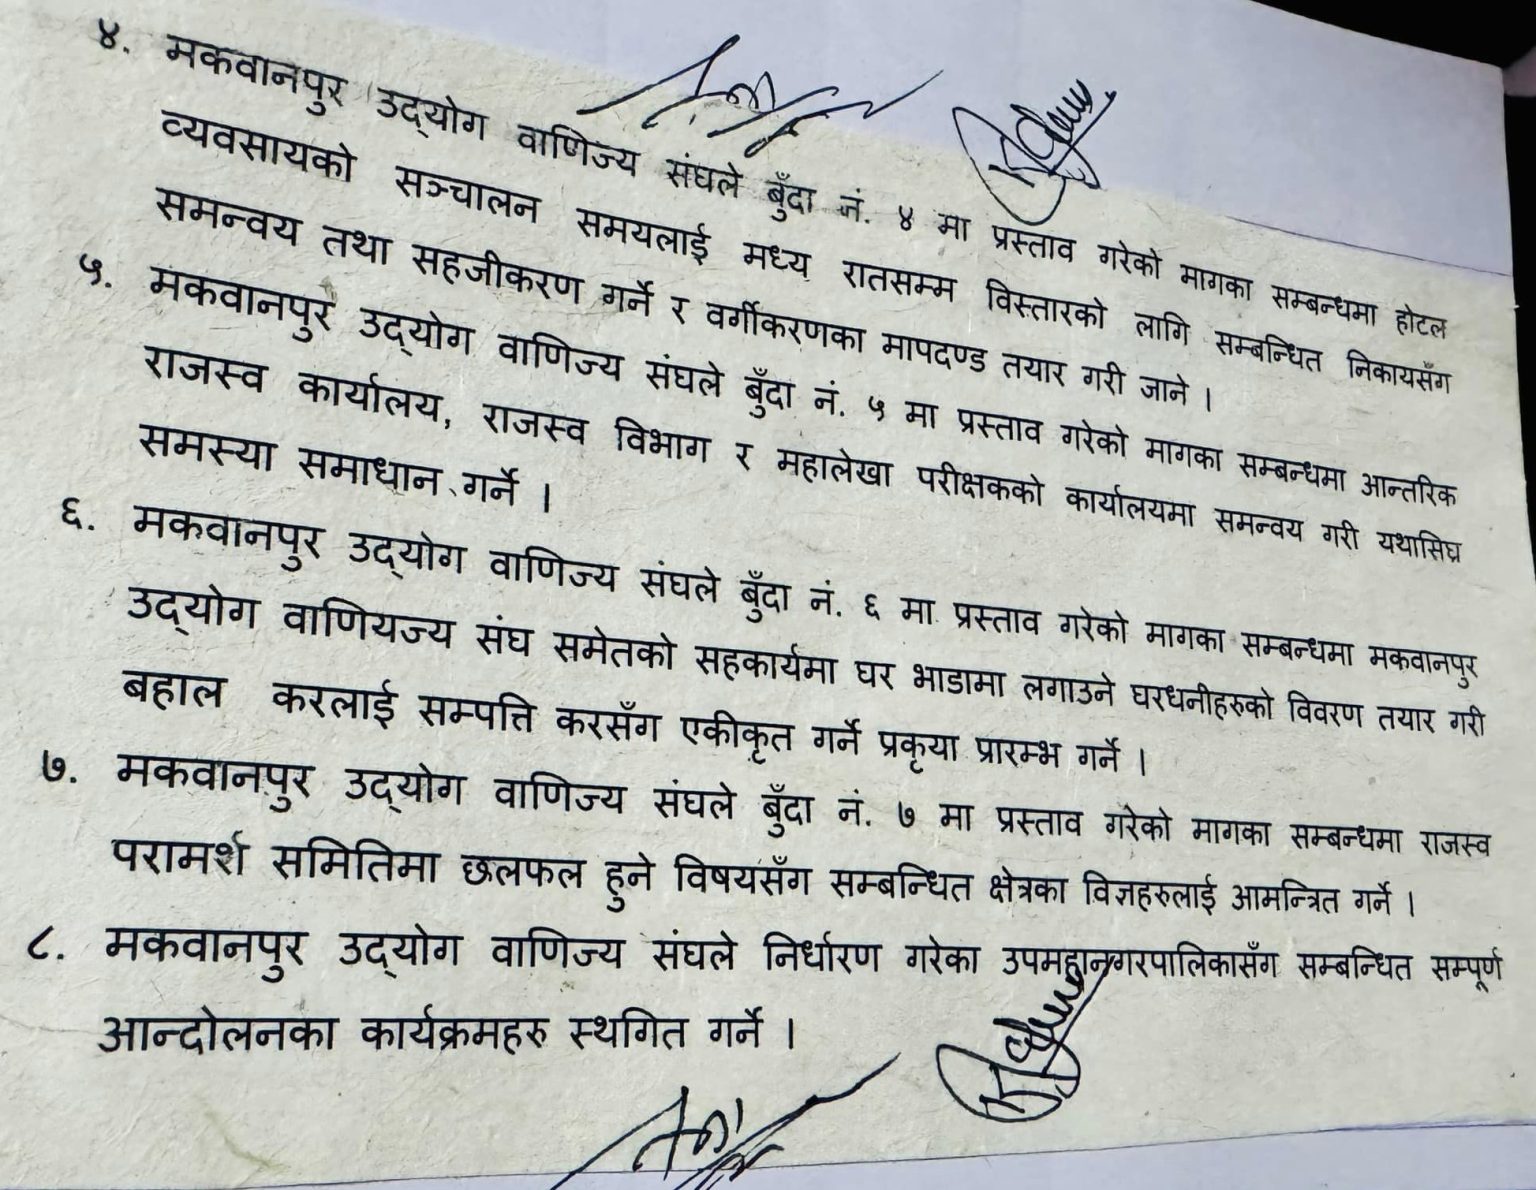 ४. मकवानपुर उद्‌योग वाणिज्य संघले बुँदा नं. ४ मा प्रस्ताव गरेको मागका सम्बन्धमा होटल
व्यवसायको सञ्चालन समयलाई मध्य रातसम्म विस्तारको लागि सम्बन्धित निकायसँग
समन्वय तथा सहजीकरण गर्ने र वर्गीकरणका मापदण्ड तयार गरी जाने ।
५. मकवानपुर उद्‌योग वाणिज्य संघले बुँदा नं. ५ मा प्रस्ताव गरेको मागका सम्बन्धमा आन्तरिक
राजस्व कार्यालय, राजस्व विभाग र महालेखा परीक्षकको कार्यालयमा समन्वय गरी यथासिघ्र
समस्या समाधान गर्ने ।
६. मकवानपुर उद्‌योग वाणिज्य संघले बुँदा नं. ६ मा प्रस्ताव गरेको मागका सम्बन्धमा मकवानपुर
उद्‌योग वाणियज्य संघ समेतको सहकार्यमा घर भाडामा लगाउने घरधनीहरुको विवरण तयार गरी
बहाल करलाई सम्पत्ति करसँग एकीकृत गर्ने प्रकृया प्रारम्भ गर्ने ।
७. मकवानपुर उद्‌योग वाणिज्य संघले बुँदा नं. ७ मा प्रस्ताव गरेको मागका सम्बन्धमा राजस्व
परामर्श समितिमा छलफल हुने विषयसँग सम्बन्धित क्षेत्रका विज्ञहरुलाई आमन्त्रित गर्ने ।
८. मकवानपुर उद्‌योग वाणिज्य संघले निर्धारण गरेका उपमहानगरपालिकासँग सम्बन्धित सम्पूर्ण
आन्दोलनका कार्यक्रमहरु स्थगित गर्ने ।